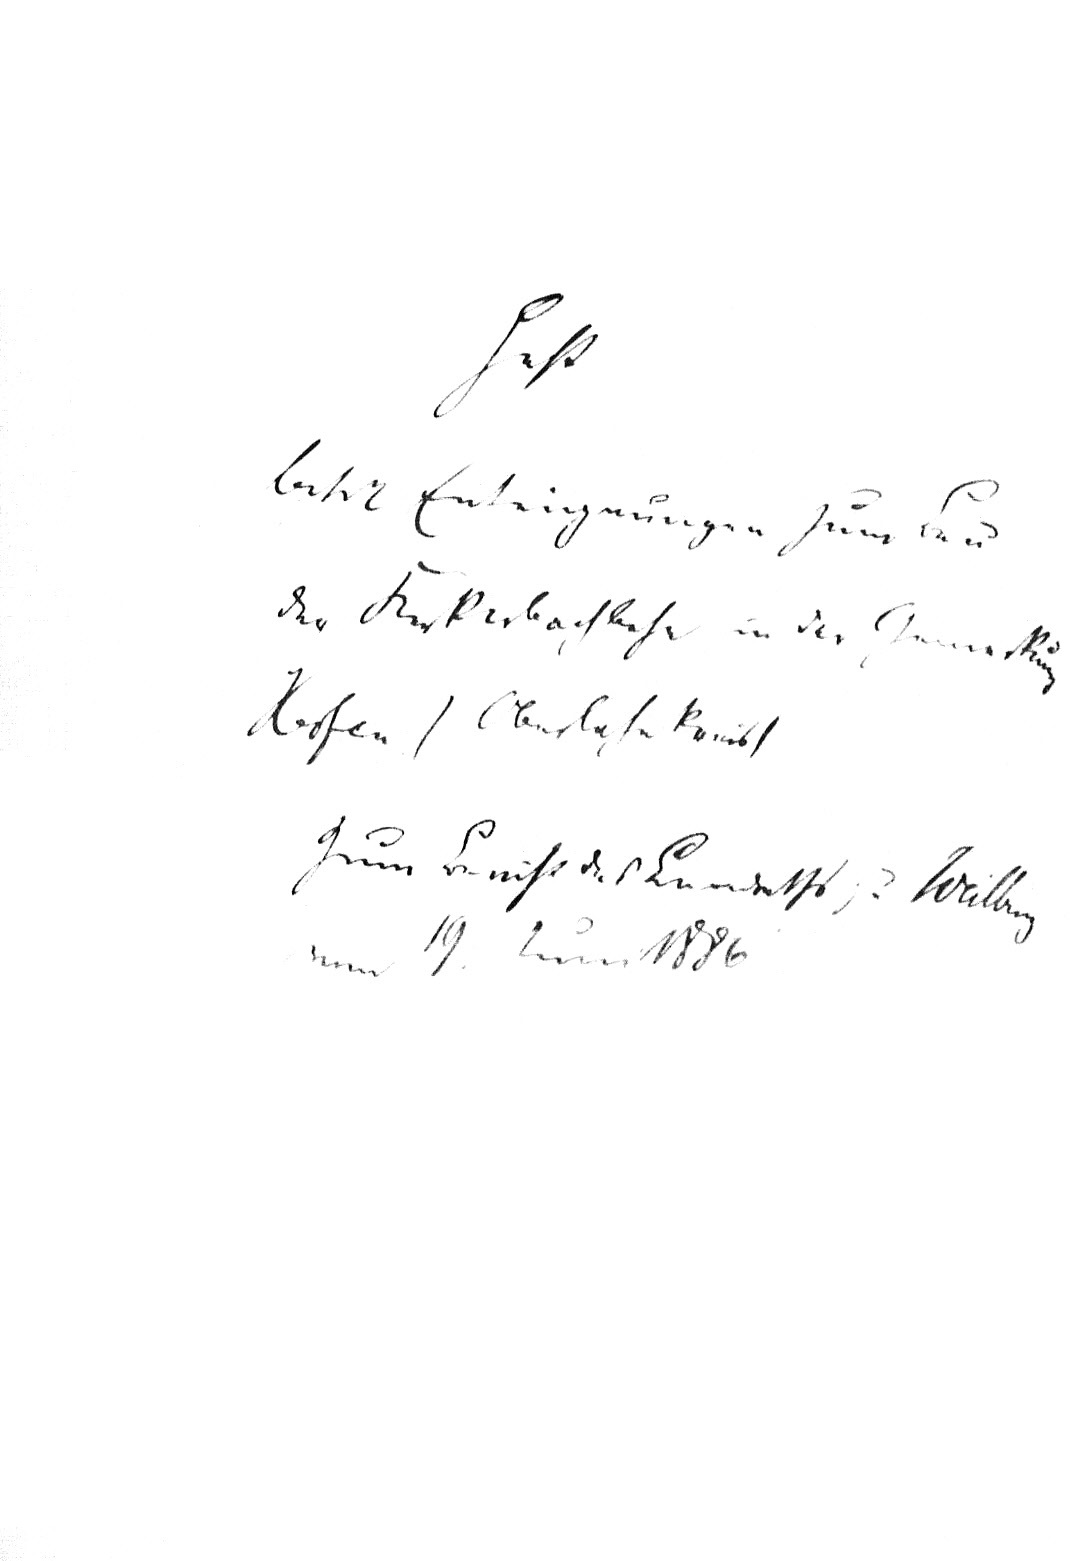 Heft
betr. Enteignungen zum Bau
der Kerkerbachbahn in der Gemarkung
Hofen / Oberlahnkreis /
Zum Bericht des Landraths zu Weilburg
vom 19. Juni 1886